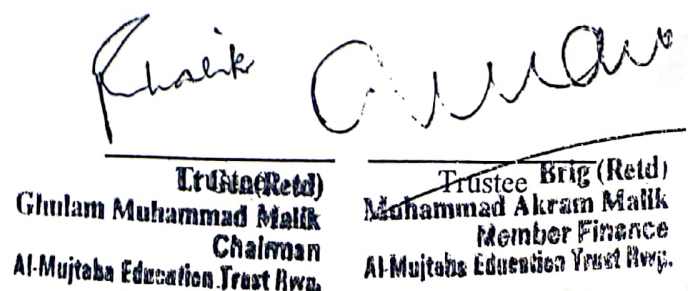 Khalik
Trustee Lt Gen (Retd)
Ghulam Muhammad Malik
Chairman
Al-Mujtaba Education Trust Rwp.
Trustee Brig (Retd)
Muhammad Akram Malik
Member Finance
Al-Mujtaba Education Trust Rwp.